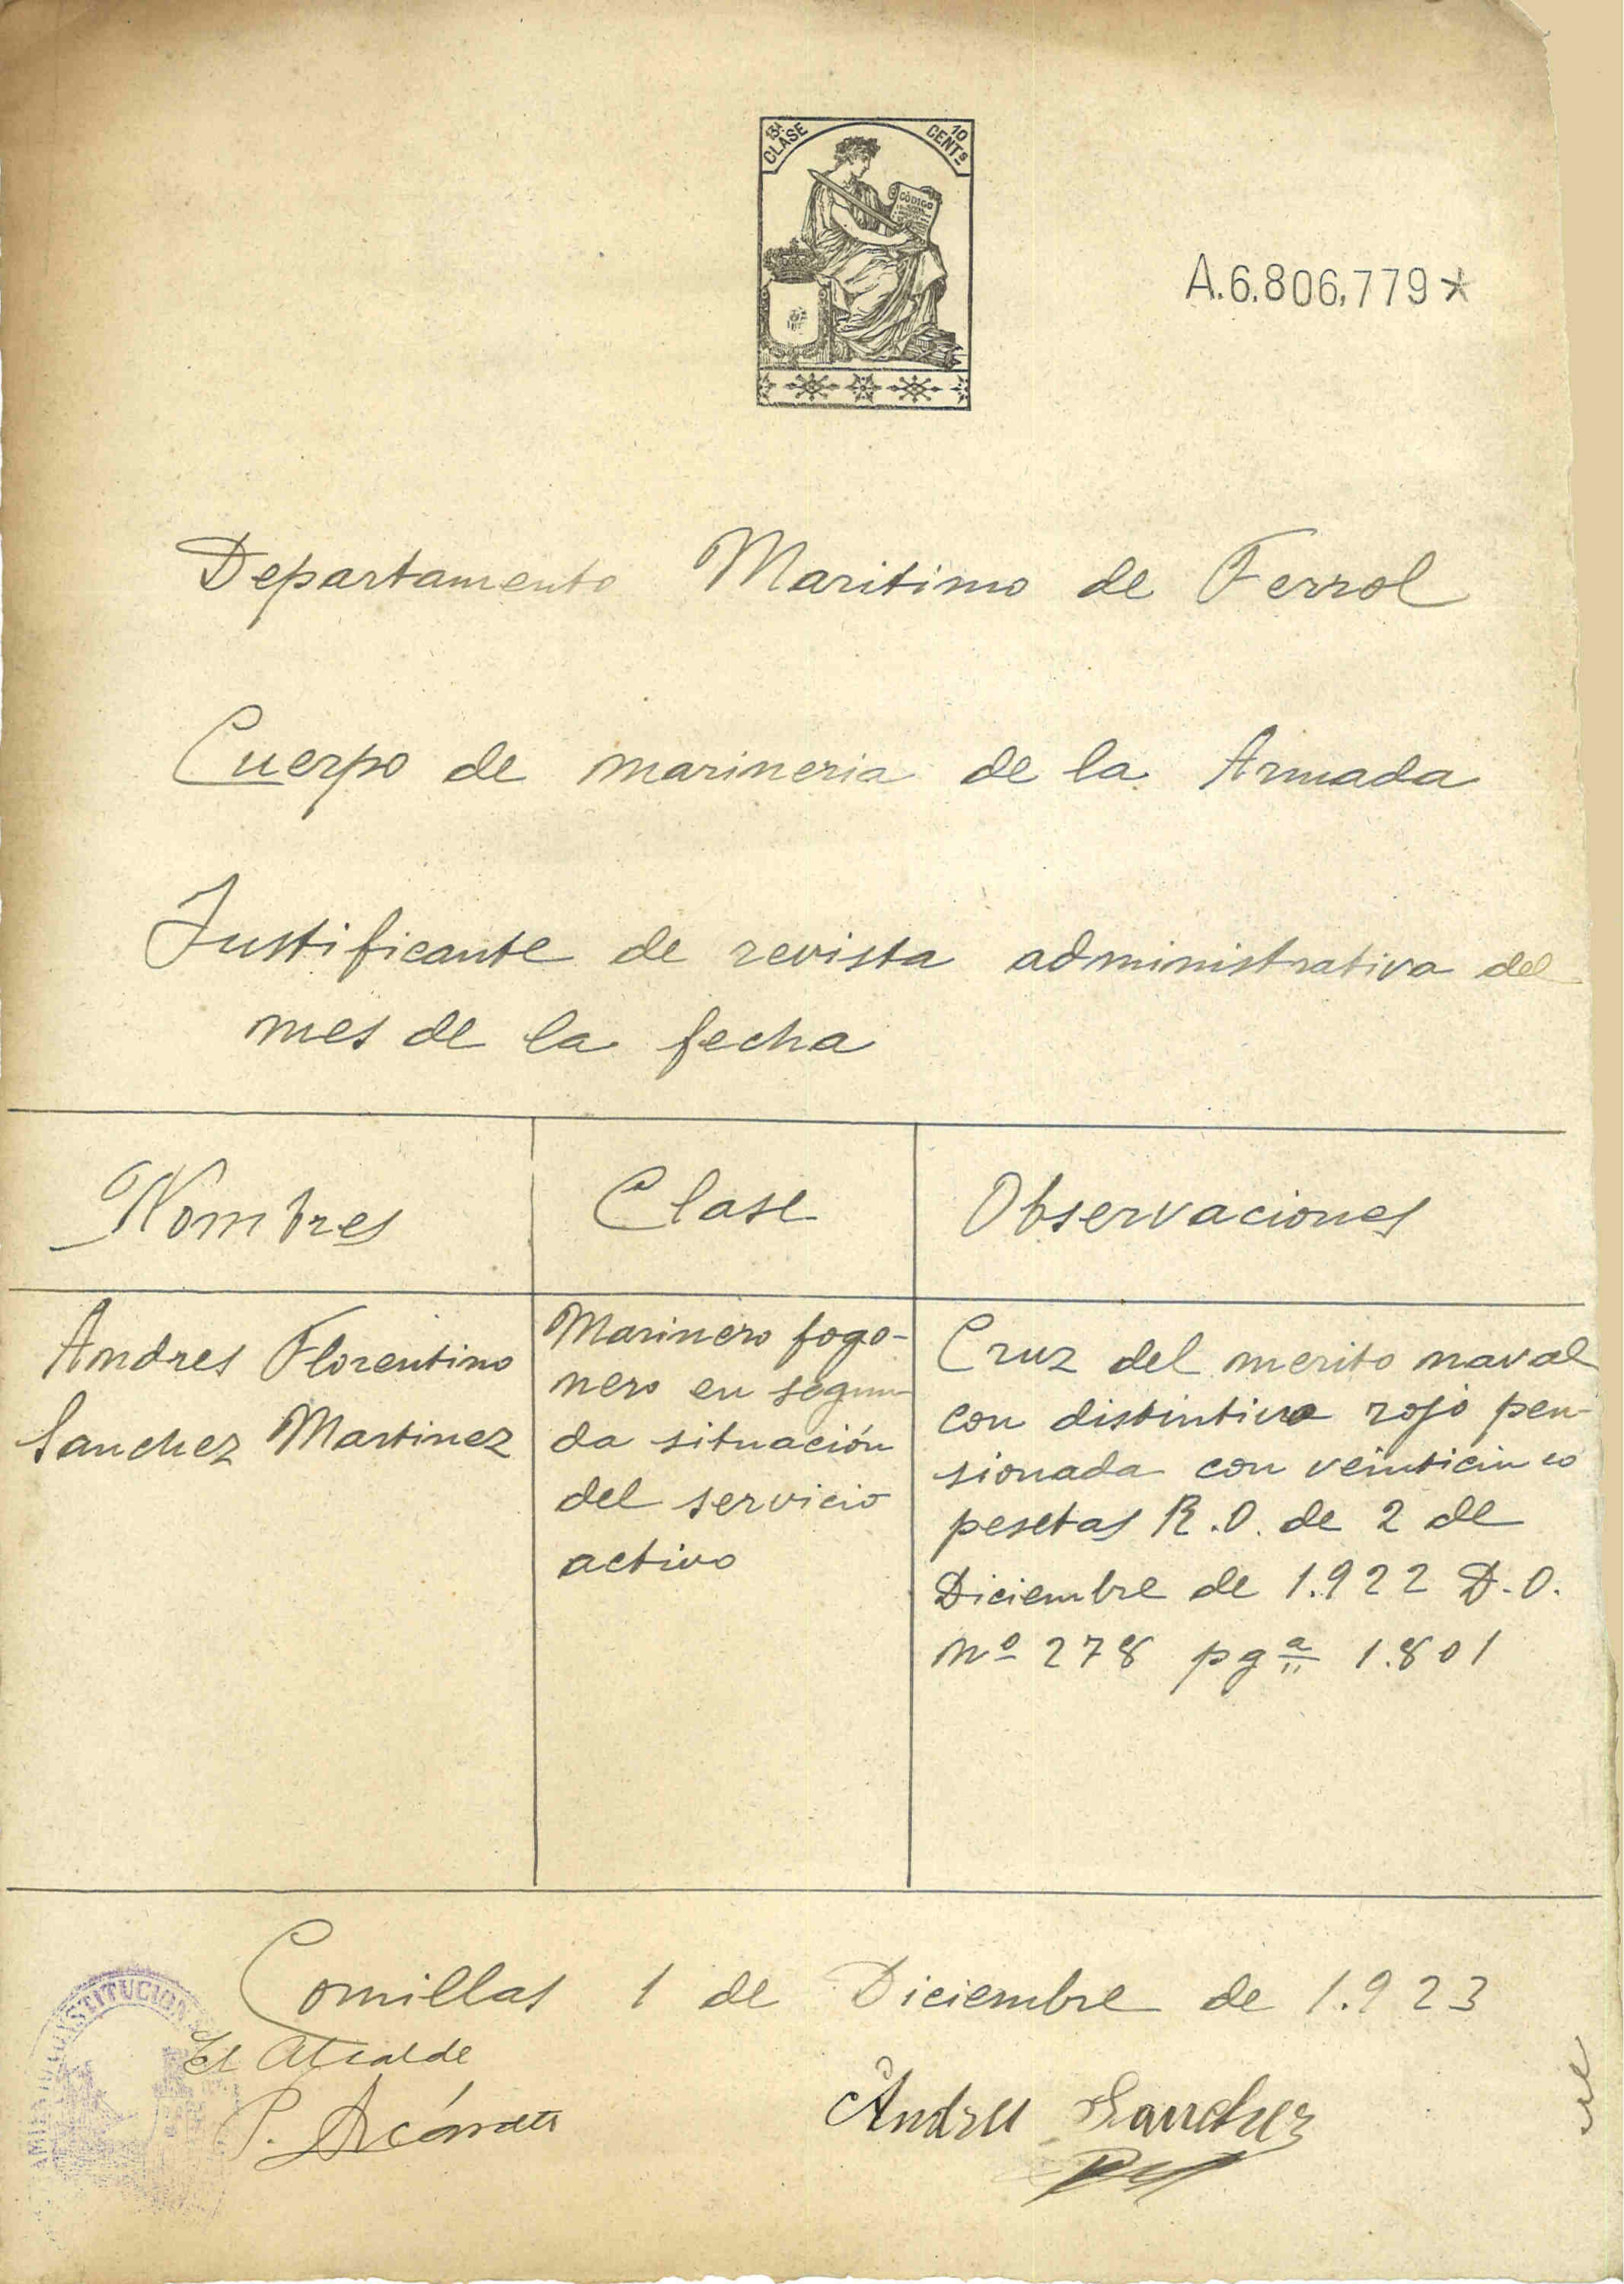 13ª CLASE
10 CENTS
CÓDIGO
A.6.806,779*
Departamento Maritimo de Ferrol
Cuerpo de marineria de la Armada
Justificante de revista administrativa del
mes de la fecha
Nombres
Clase
Observaciones
Andres Florentino
Sanchez Martinez
Marinero fogo-
nero en segun-
da situación
del servicio
activo
Cruz del merito naval
con distintivo rojo pen-
sionada con veinticinco
pesetas R.O. de 2 de
Diciembre de 1.922 D.O.
Nº 278 pgª 1.801
Comillas 1 de Diciembre de 1.923
El Alcalde
P.
Andres Sanchez